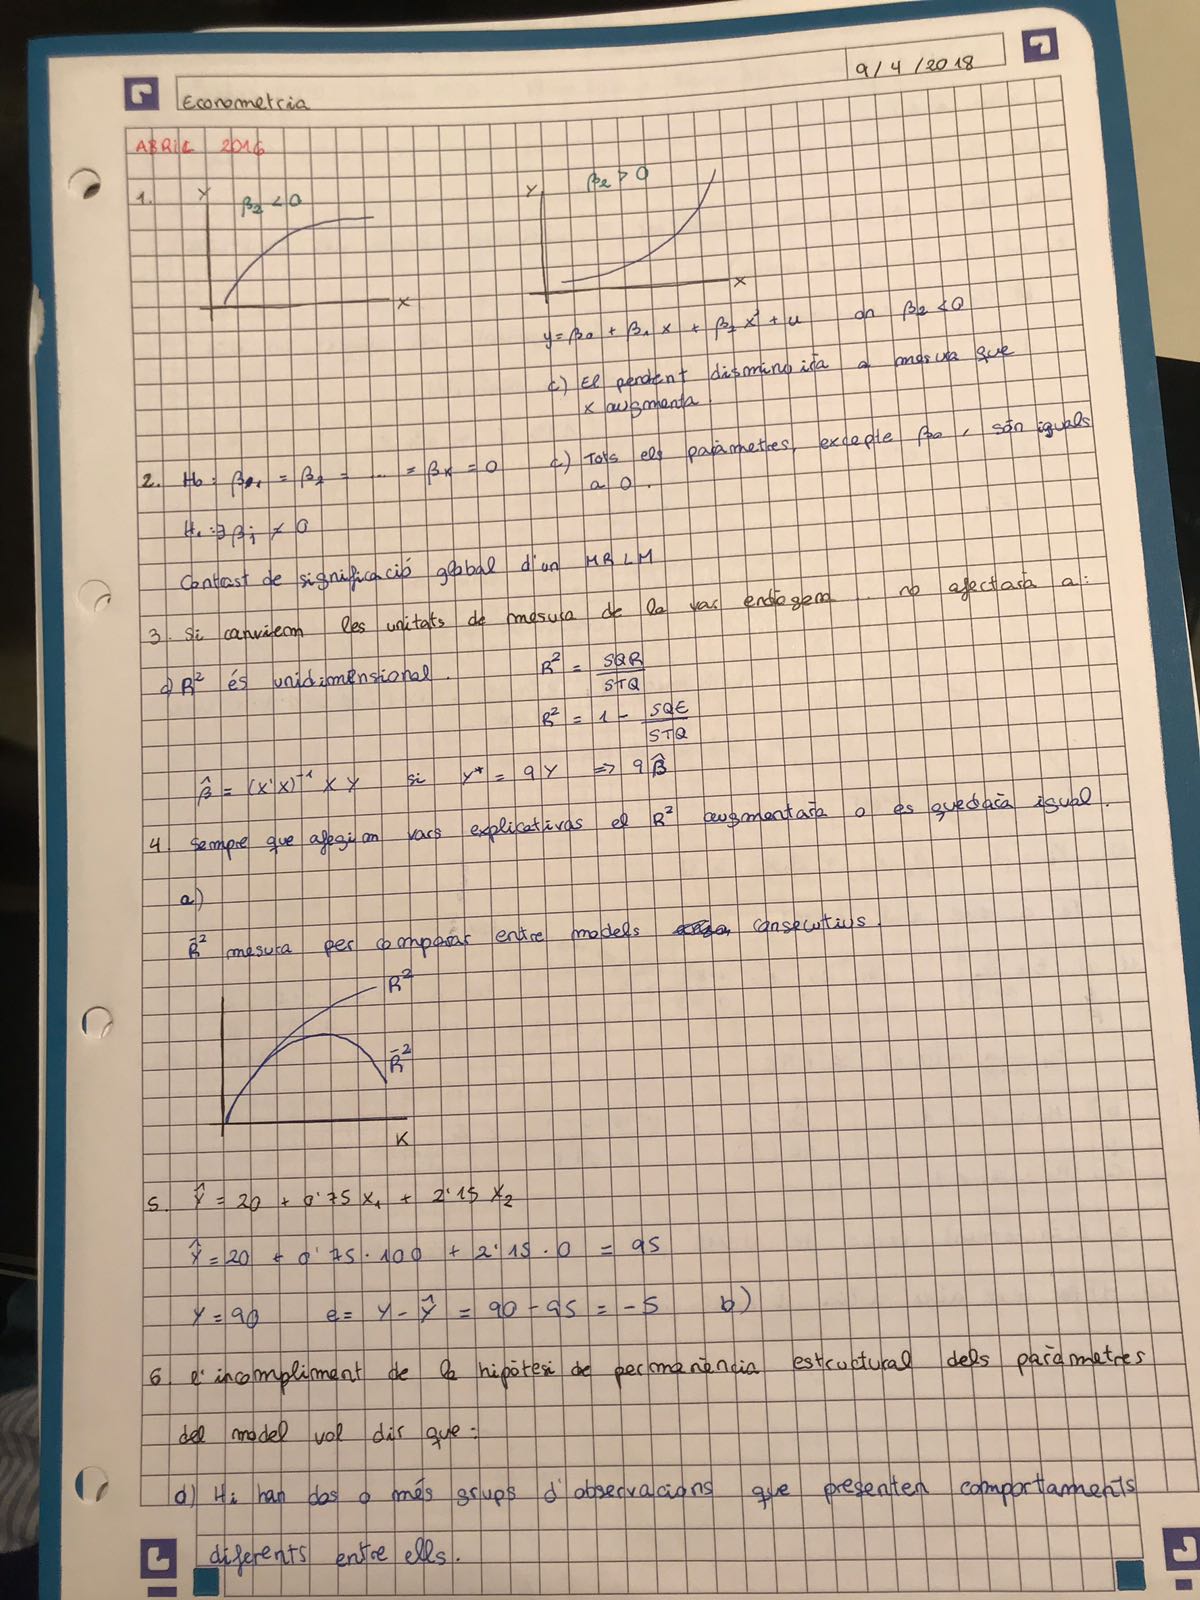 9/4/2018
Econometria
ABRIL 2016
1. Y β₂ < 0 X
Y β₂ > 0 X
y = β₀ + β₁ x + β₂ x² + u on β₂ < 0
c) El pendent disminuirà a mesura que
x augmenta
2. H₀: β₁ = β₂ = ... = βK = 0 c) Tots els paràmetres, excepte β₀, són iguals
a 0.
H₁: ∃ βj ≠ 0
Contrast de significació global d'un MRLM
3. Si canviem les unitats de mesura de la var endògena no afectarà a:
d) R² és unidimensional. R² = SQR / STQ
R² = 1 - SQE / STQ
β̂ = (X'X)⁻¹ X Y si Y* = 9Y => 9β̂
4. Sempre que afegim vars explicatives el R² augmentarà o es quedarà igual.
a)
R̄² mesura per comparar entre models consecutius.
R²
R̄²
K
5. Ŷ = 20 + 0'75 X₁ + 2'15 X₂
Ŷ = 20 + 0'75 · 100 + 2'15 · 0 = 95
Y = 90 e = Y - Ŷ = 90 - 95 = -5 b)
6. L'incompliment de la hipòtesi de permanència estructural dels paràmetres
del model vol dir que:
d) Hi han dos o més grups d'observacions que presenten comportaments
diferents entre ells.